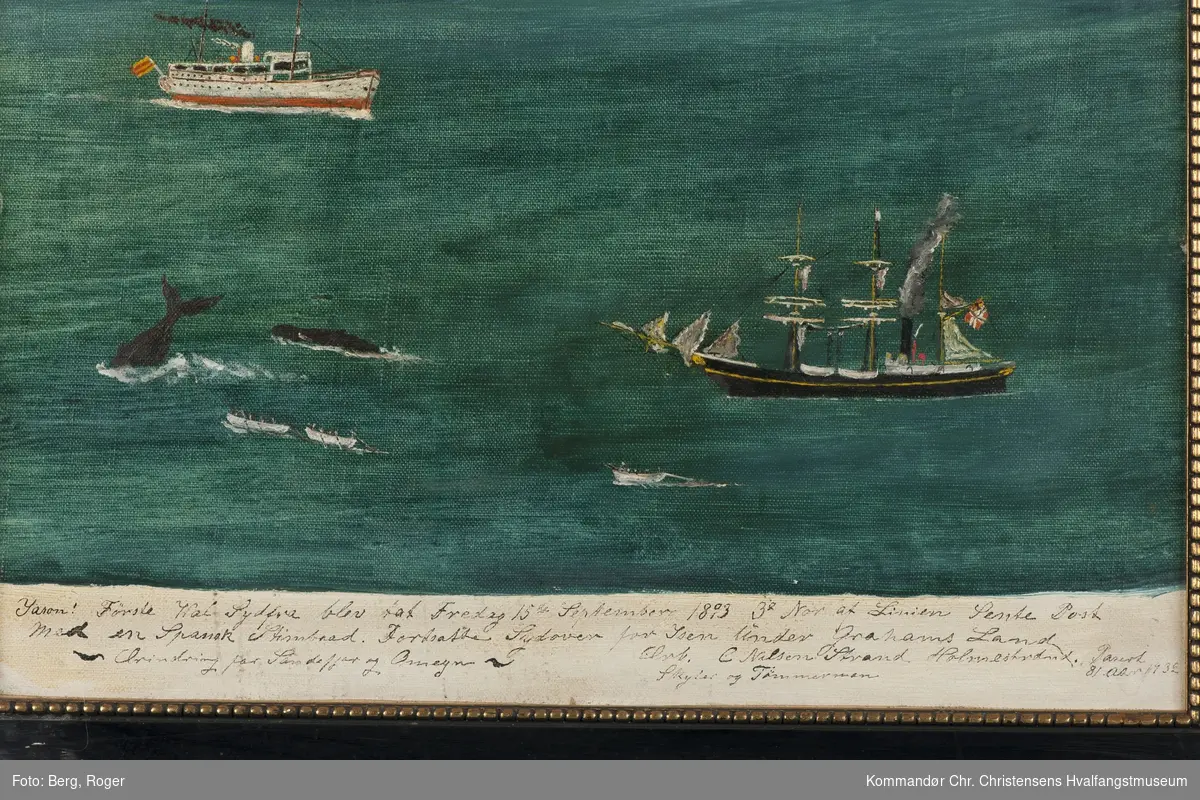 Jason! Förste Hval Sydfra blev sat Fredag 15de September 1893 3° Nor at Linien Sente Post
Med en Spansk Stimbaad. Fortsatte Sydover for Isen Under Grahams Land
Ærindring far Sandefjor og Omegn C Nilsen Strand Holmestrand.
Skyter og Tömmerman 81 aar 1932
Foto: Berg, Roger
Kommandør Chr. Christensens Hvalfangstmuseum